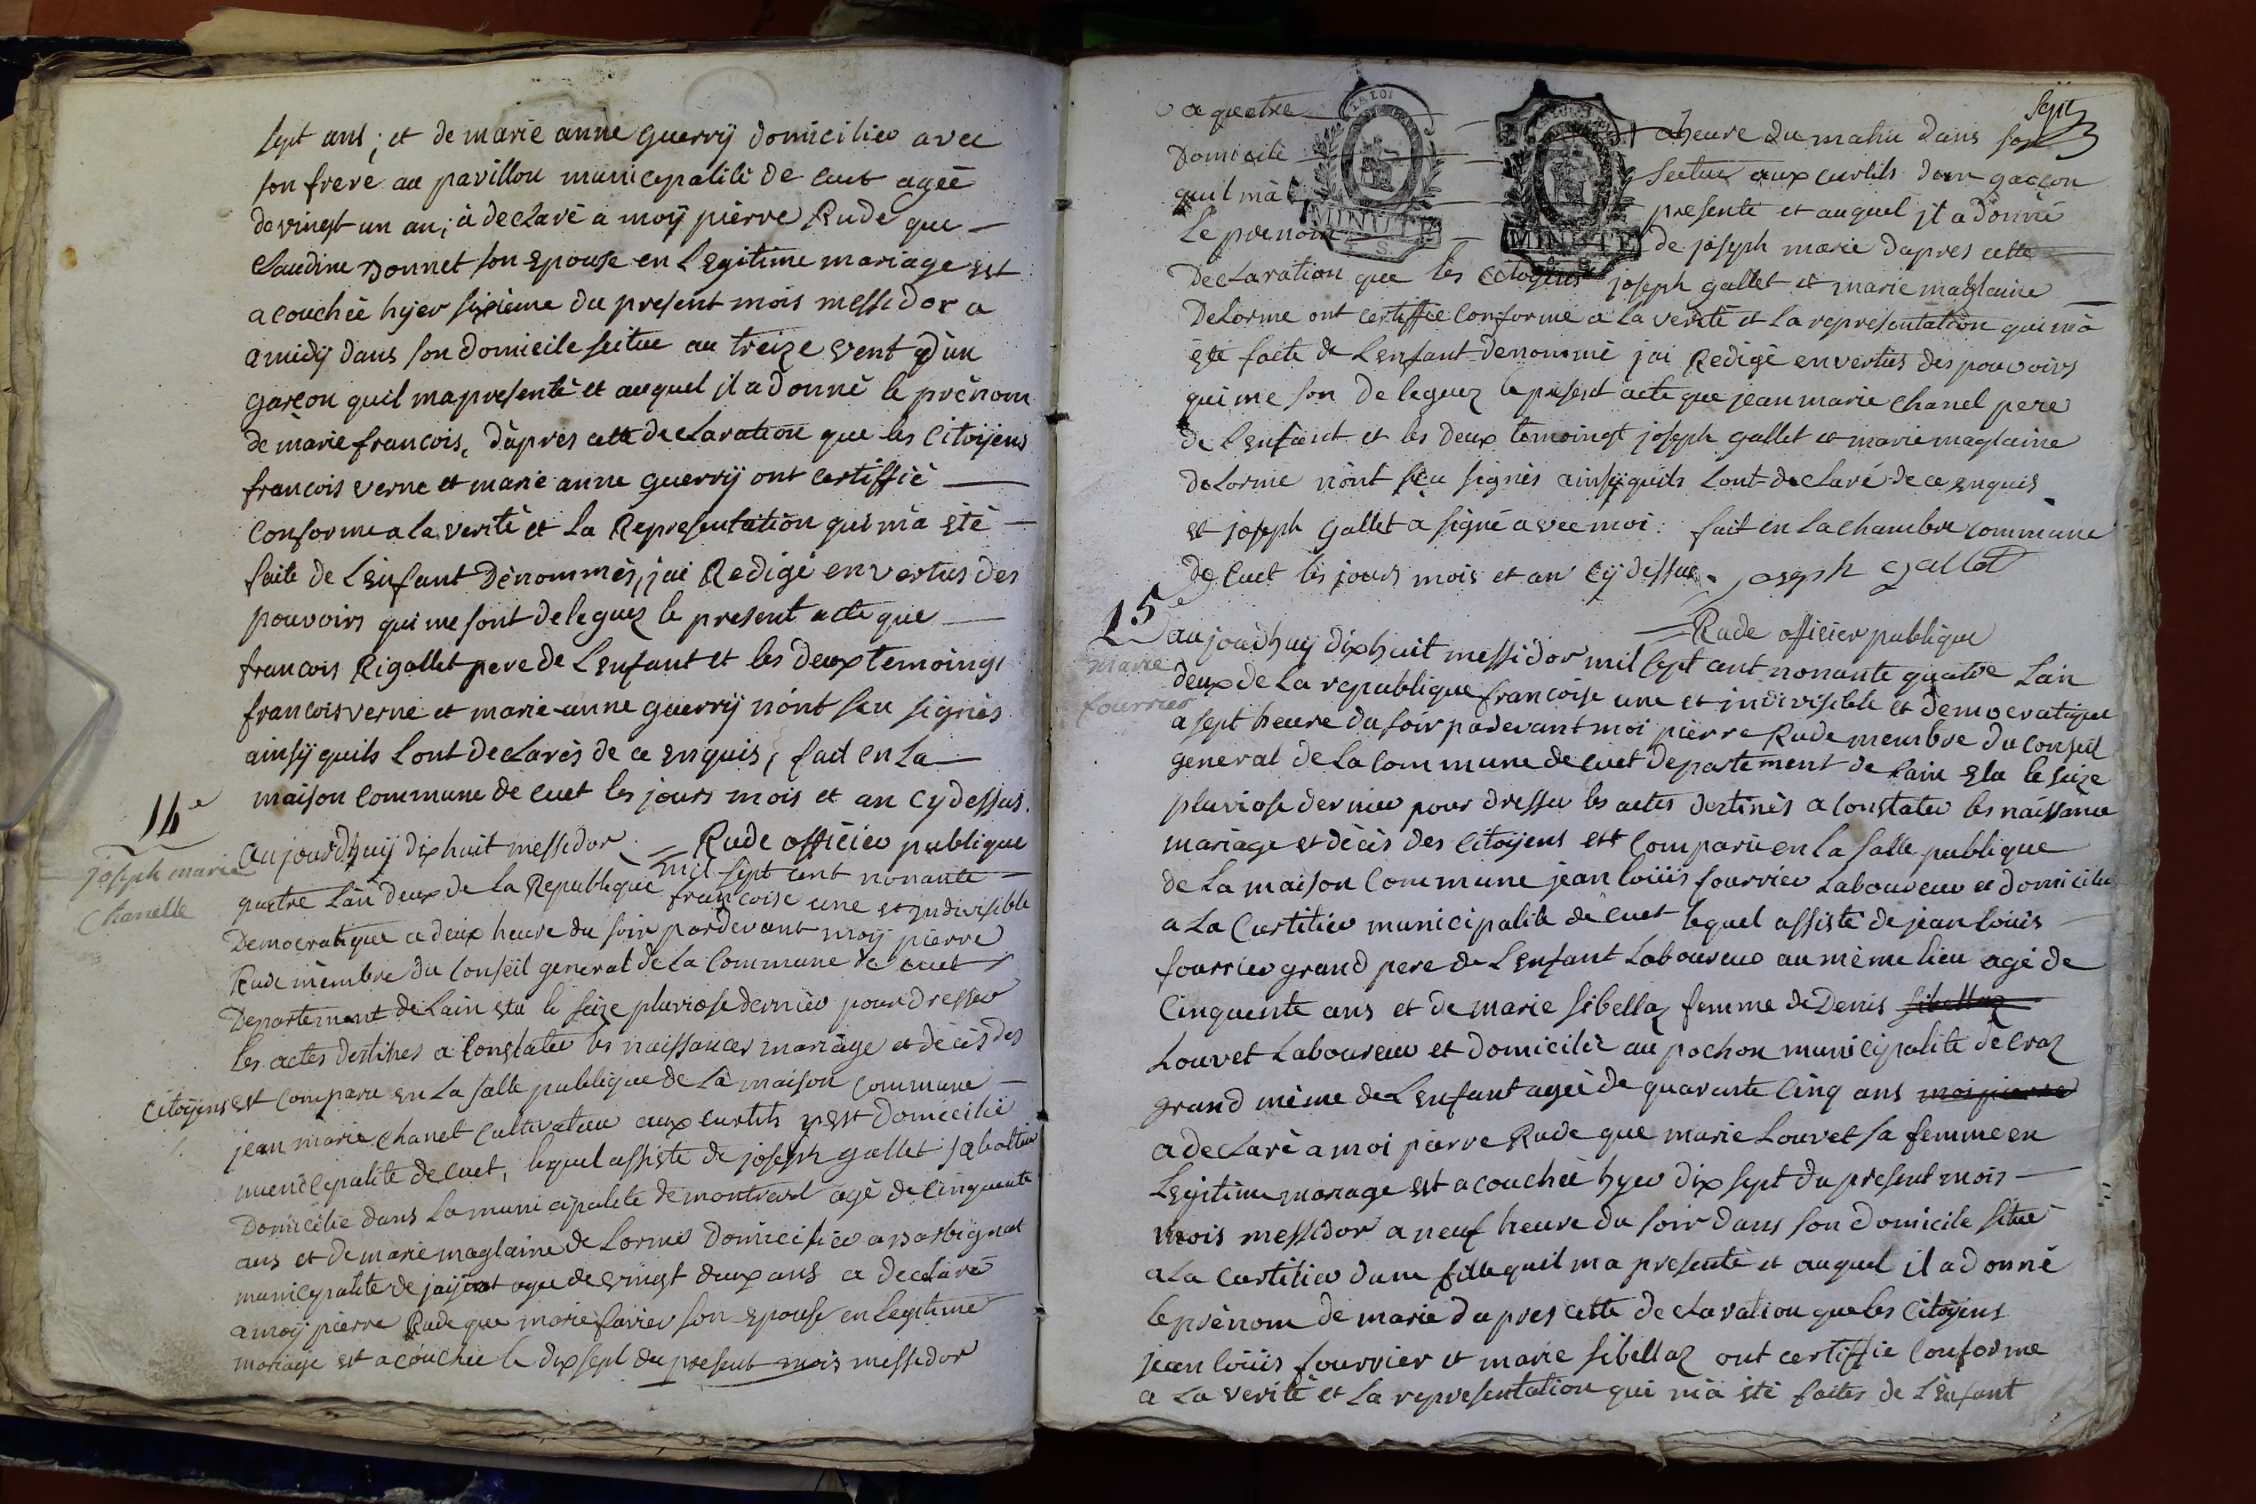 sept ans; et de marie anne guerrÿ domicilieu avec
son frere au pavillou municipalité de cuet agée
de vingt un an; à declaré a moÿ pierre Rude que
Claudine Donnet son epouse en Legitime mariage est
acouchée hyer sixième du present mois messidor a
a midÿ dans son domicile scitue au treize vent d'un
garcon quil ma presenté et auquel il a donné le prènom
de marie francois, d'apres cette declaration que les Citoÿens
francois verne et marie anne guerrÿ ont certiffié
Conforme a la verité et la Representation qui m'a eté
faite de L'enfant dénommés, jai Redigé en vertus des
pouvoirs qui me sont deleguez le present acte que
francois Rigollet pere de L'enfant et les deux temoings
francois verne et marie anne guerrÿ nont sçu signés
ainsÿ quils Lont declarés de ce enquis, fait en la
maison Commune de cuet les jours mois et an cydessus.
Rude officier publique
14e
joseph marie
Chanelle
aujourdhuÿ dixhuit messidor mil sept cent nonante
quatre Lan deux de la Republique francoise une et indivisible
Democratique a deux heure du soir pardevant moÿ pierre
Rude membre du Conseil general de la Commune de cuet
Departement de Lain elu le seize pluviose dernier pour dresser
les actes destinés a Constater les naissances mariage et décès des
Citoÿens est Comparu en la salle publique de la maison Commune
jean marie chanel Cultivateur aux curtils y est domicilié
municipalité de cuet, lequel assisté de joseph gallet sabotier
Domicilié dans la municipalite de montrevel agé de cinquente
ans et de marie maglaine de Lorme domiciliée a
municipalité de jaÿat agée de vingt deux ans a declaré
a moÿ pierre Rude que marie favier son epouse en legitime
mariage est acouchée le dix sept du present mois messidor
sept
a quatre heure du matin dans son
Domicile scitue aux curtils dun garcon
quil mà presenté et auquel jl a donné
le prénom de joseph marie dapres cette
Declaration que les citoÿens joseph gallet et marie maglaine
Delorme ont certiffié Conforme a la verité et la representation qui mà
été faite de L'enfant denommé jai Redigé en vertus des pouvoirs
qui me son deleguez le present acte que jean marie chanel pere
de L'enfant et les deux temoingt joseph gallet et marie maglaine
delorme nont sçu signés ainsÿ quils Lont declaré de ce enquis
et joseph Gallet a signé avec moi. fait en la chambre commune
de Cuet les jours mois et an cÿdessus. joseph gallet
Rude officier publique
15e
marie
fourrier
aujourdhuÿ dixhuit messidor mil sept cent nonante quatre Lan
deux de la republique francoise une et indivisible et democratique
a sept heure du soir pardevant moi pierre Rude membre du Conseil
general de la Commune de cuet departement de Lain elu le seize
pluviose dernier pour dresser les actes destinés a Constater les naissance
mariage et décès des citoÿens est Comparu en la salle publique
de la maison Commune jean loüis fourrier laboureur et domicilié
a La Curtilier municipalité de cuet lequel assisté de jean louis
fourrier grand pere de L'enfant Laboureur au même lieu agé de
Cinquente ans et de marie sibellaz femme de Denis sibellaz
Louvet Laboureur et domicilié au pochon municipalité de Craz
grand mème de L'enfant agée de quarante cinq ans moi pierre
a declaré a moi pierre Rude que marie Louvet sa femme en
Legitime mariage est acouchée hyer dix sept du present mois
mois messidor a neuf heure du soir dans son domicile situé
a La Curtilier dune fille quil ma presenté et auquel il a donné
le prènom de marie dapres cette declaration que les citoÿens
jean loüis fourrier et marie sibellaz ont certiffié Conforme
a La verité et La representation qui mà été faites de L'enfant